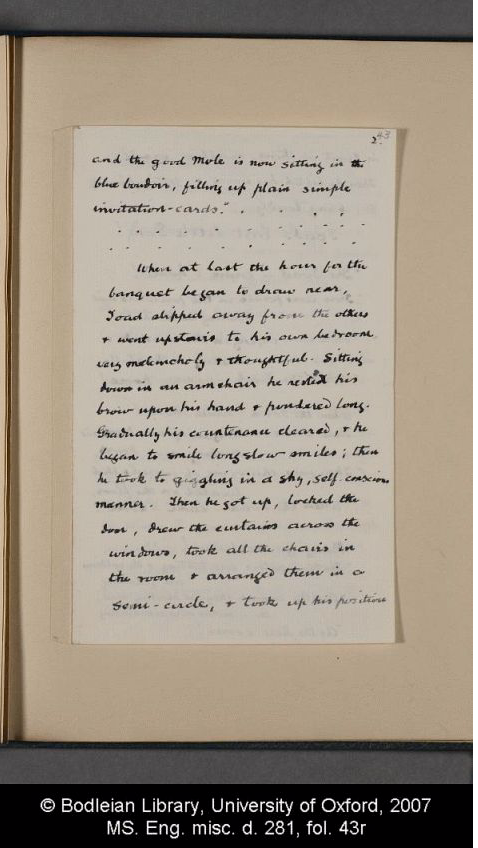 43
2.
and the good Mole is now sitting in the
blue boudoir, filling up plain simple
invitation-cards."
When at last the hour for the
banquet began to draw near,
Toad slipped away from the others
& went upstairs to his own bedroom
very melancholy & thoughtful. Sitting
down in an armchair he rested his
brow upon his hand & pondered long.
Gradually his countenance cleared, & he
began to smile long slow smiles; then
he took to giggling in a shy, self-conscious
manner. Then he got up, locked the
door, drew the curtains across the
windows, took all the chairs in
the room & arranged them in a
semi-circle, & took up his position
© Bodleian Library, University of Oxford, 2007
MS. Eng. misc. d. 281, fol. 43r